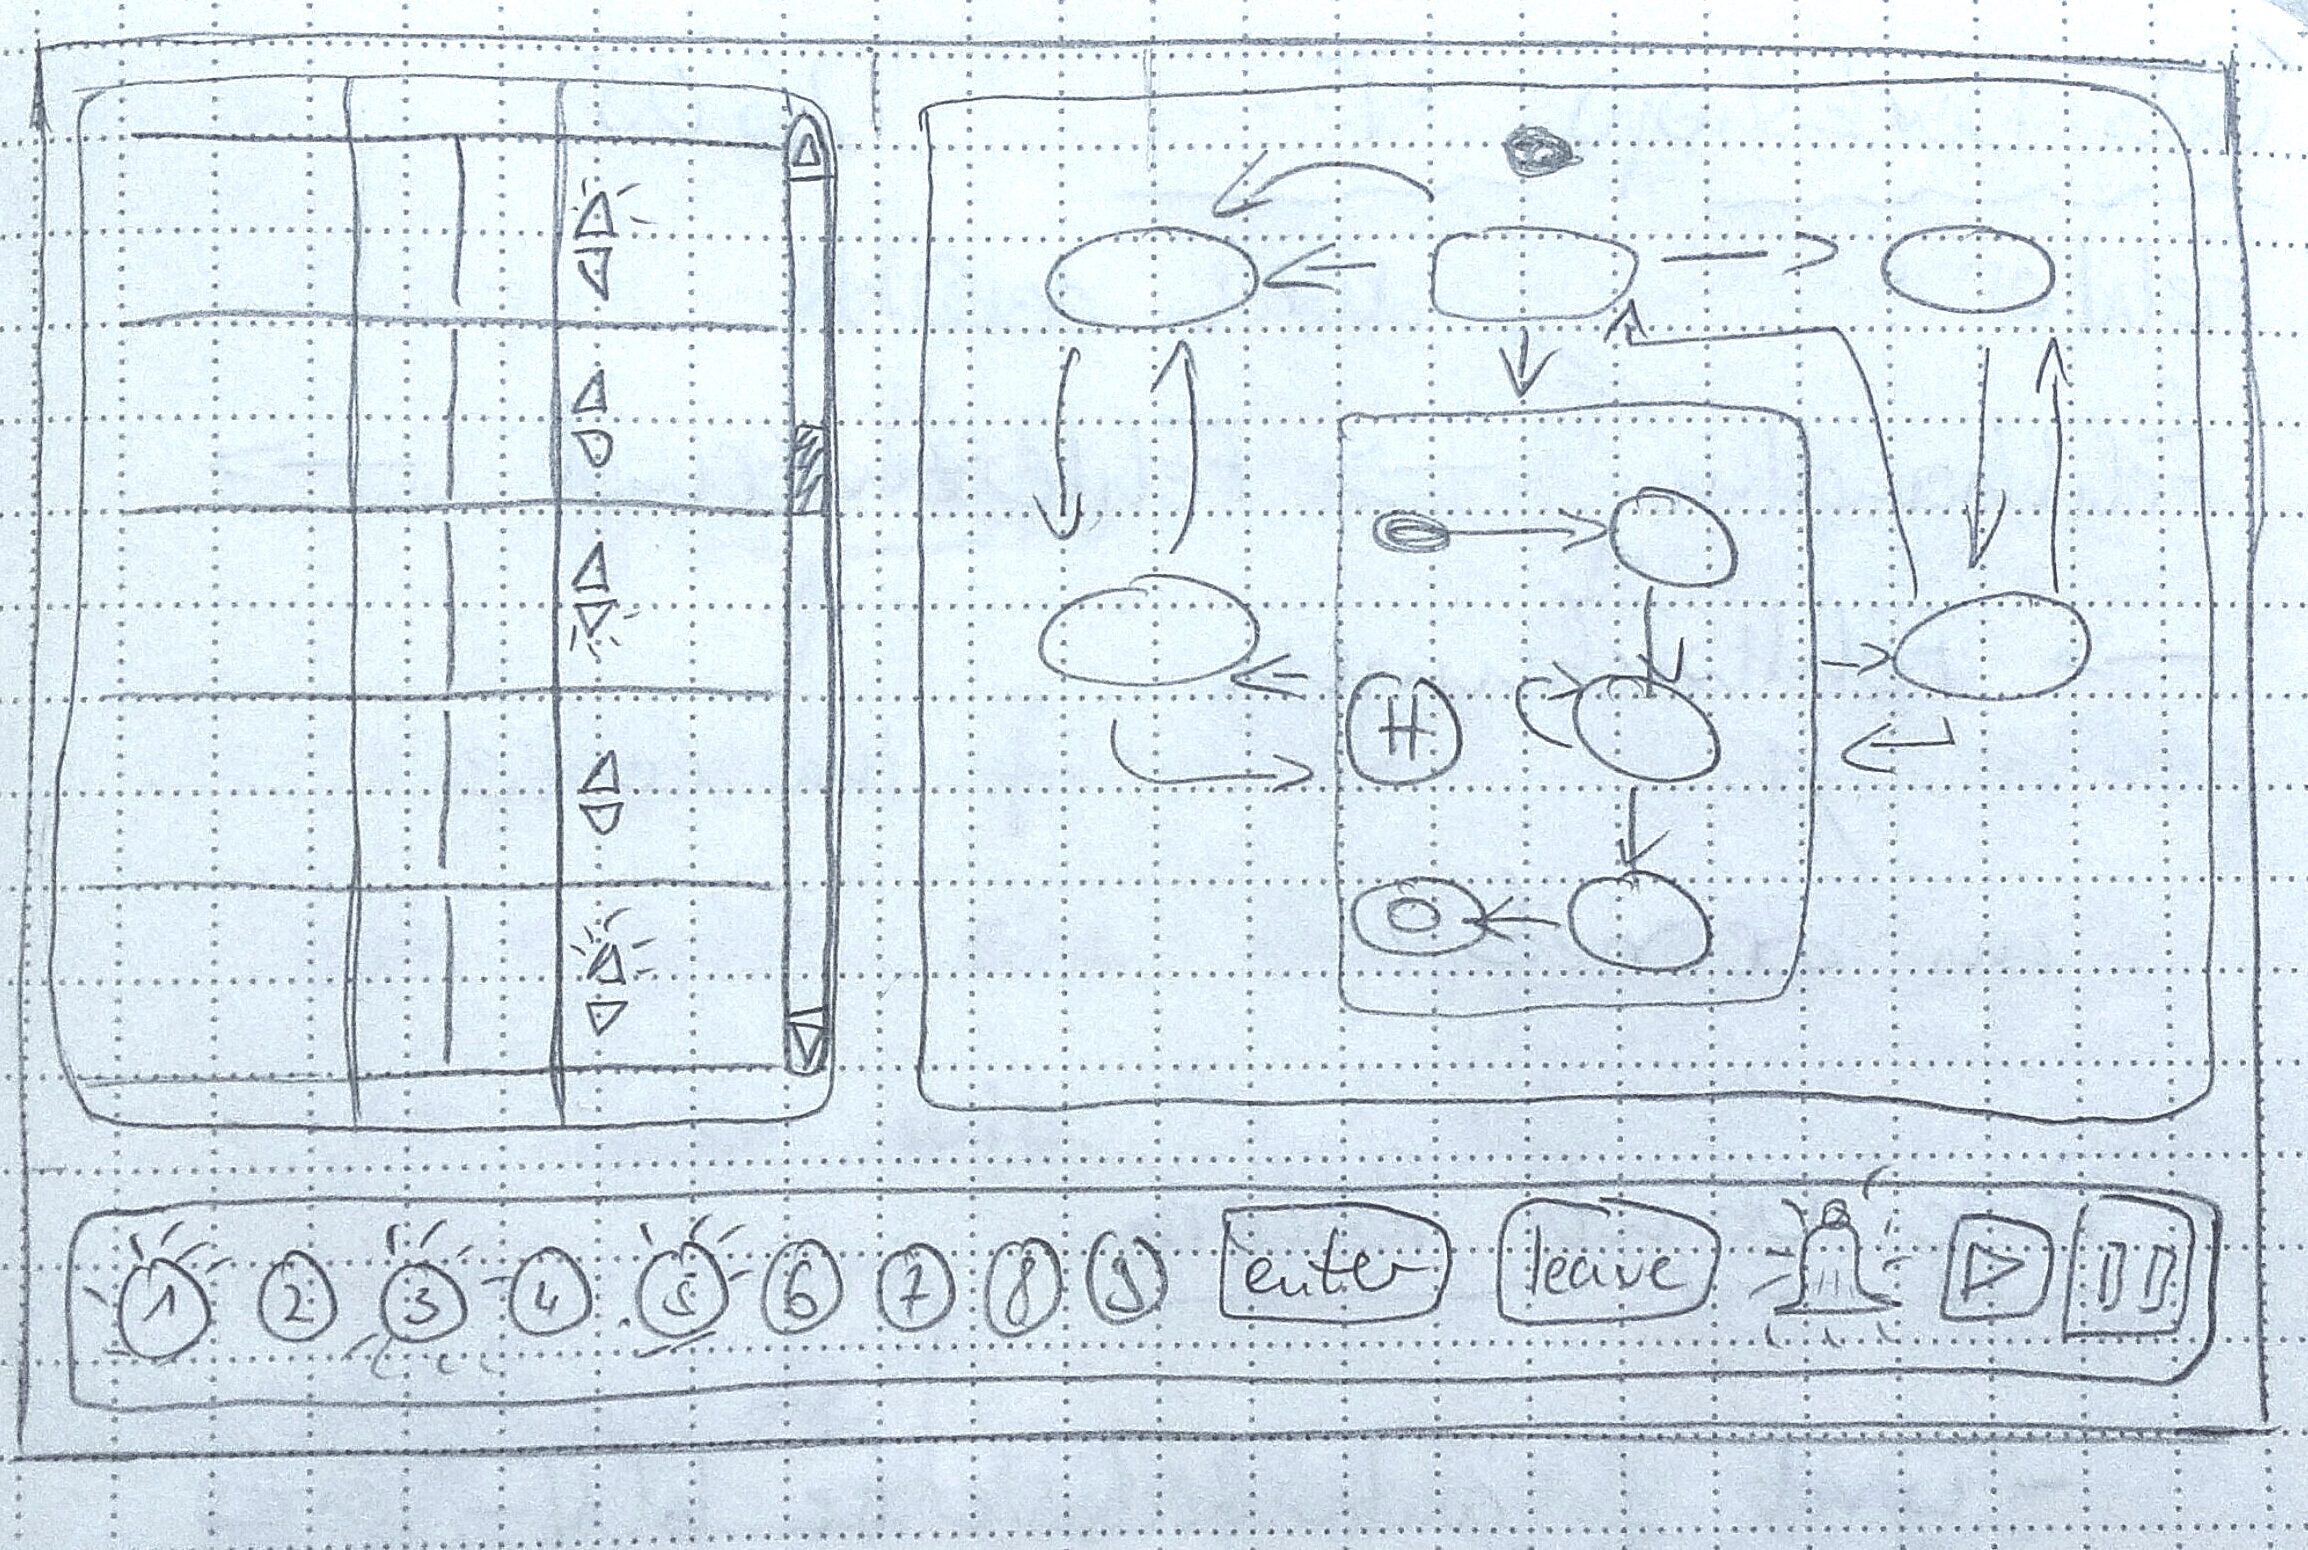 H
1 2 3 4 5 6 7 8 9 enter leave